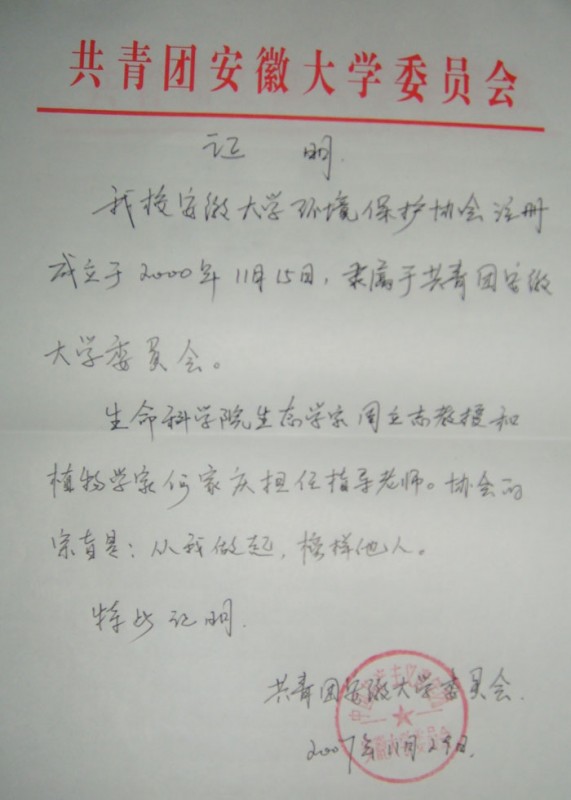 共青团安徽大学委员会
证 明
我校安徽大学环境保护协会注册
成立于2000年11月15日，隶属于共青团安徽
大学委员会。
生命科学院生态学家周立志教授和
植物学家何家庆担任指导老师。协会的
宗旨是：从我做起，榜样他人。
特此证明.
共青团安徽大学委员会.
2007年11月29日.